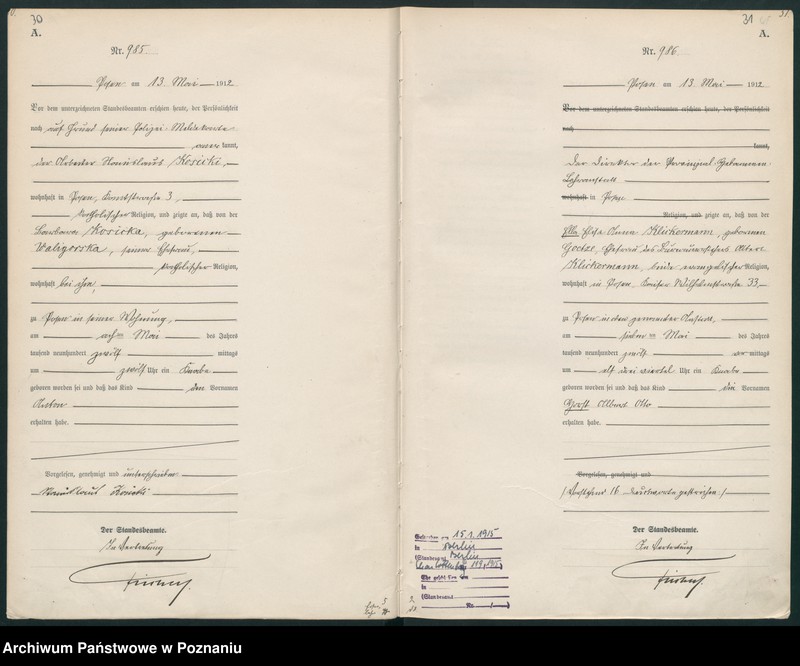 30
A.
Nr. 985
Posen am 13. Mai 1912
Vor dem unterzeichneten Standesbeamten erschien heute, der Persönlichkeit
nach auf Grund seiner Polizei-Meldekarte
anerkannt,
der Arbeiter Stanislaus Kosicki,
wohnhaft in Posen, 3,
katholischer Religion, und zeigte an, daß von der
Barbara Kosicka, geborenen
Waligorska, seiner Ehefrau,
katholischer Religion,
wohnhaft bei ihm,
zu Posen in seiner Wohnung,
am acht ten Mai des Jahres
tausend neunhundert zwölf mittags
um zwölf Uhr ein Knabe
geboren worden sei und daß das Kind den Vornamen
Anton
erhalten habe.
Vorgelesen, genehmigt und unterschrieben
Stanislaus Kosicki
Der Standesbeamte.
In Vertretung
31
A.
Nr. 986
Posen am 13. Mai 1912
Vor dem unterzeichneten Standesbeamten erschien heute, der Persönlichkeit
nach
kannt,
Der Direktor der Provinzial-Hebammen-
Lehranstalt
wohnhaft in Posen
Religion, und zeigte an, daß von der
Ella Elise Anna Klickermann, geborenen
Goetze, Ehefrau des Albert
Klickermann, beide evangelischer Religion,
wohnhaft in Posen, Kaiser Wilhelmstraße 33,
zu Posen in der genannten Anstalt,
am sieben ten Mai des Jahres
tausend neunhundert zwölf vormittags
um elf drei viertel Uhr ein Knabe
geboren worden sei und daß das Kind die Vornamen
Horst Albert Otto
erhalten habe.
Vorgelesen, genehmigt und
(Vorstehend 16 Druckworte gestrichen)
Der Standesbeamte.
In Vertretung
15.1.1915
in Berlin
(Standesamt Berlin
Ehe geschl.
in
(Standesamt
Nr. /
Archiwum Państwowe w Poznaniu